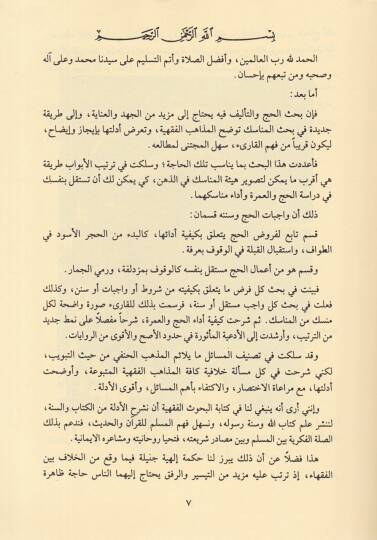 بسم الله الرحمن الرحيم
الحمد لله رب العالمين، وأفضل الصلاة وأتم التسليم على سيدنا محمد وعلى آله
وصحبه ومن تبعهم بإحسان.
أما بعد:
فإن بحث الحج والتأليف فيه يحتاج إلى مزيد من الجهد والعناية، وإلى طريقة
جديدة في بحث المناسك توضح المذاهب الفقهية، وتعرض أدلتها بإيجاز وإيضاح،
ليكون قريباً من فهم القارىء، سهل المجتنى لمطالعه.
فأعددت هذا البحث بما يناسب تلك الحاجة؛ وسلكت في ترتيب الأبواب طريقة
هي أقرب ما يمكن لتصوير هيئة المناسك في الذهن، كي يمكن لك أن تستقل بنفسك
في دراسة الحج والعمرة وأداء مناسكهما.
ذلك أن واجبات الحج وسننه قسمان:
قسم تابع لفروض الحج يتعلق بكيفية أدائها، كالبدء من الحجر الأسود في
الطواف، واستقبال القبلة في الوقوف بعرفة.
وقسم هو من أعمال الحج مستقل بنفسه كالوقوف بمزدلفة، ورمي الجمار.
فبينت في بحث كل فرض ما يتعلق بكيفيته من شروط أو واجبات أو سنن، وكذلك
فعلت في بحث كل واجب مستقل أو سنة، فرسمت بذلك للقارىء صورة واضحة لكل
منسك من المناسك. ثم شرحت كيفية أداء الحج والعمرة، شرحاً مفصلاً على نمط جديد
من الترتيب، وأرشدت إلى الأدعية المأثورة في حدود الأصح والأقوى من الروايات.
وقد سلكت في تصنيف المسائل ما يلائم المذهب الحنفي من حيث التبويب،
لكني شرحت في كل مسألة خلافية كافة المذاهب الفقهية المتبوعة، وأوضحت
أدلتها، مع مراعاة الاختصار، والاكتفاء بأهم المسائل، وأقوى الأدلة.
وإنني أرى أنه ينبغي لنا في كتابة البحوث الفقهية أن نشرح الأدلة من الكتاب والسنة،
لننشر علم كتاب الله وسنة رسوله، ونسهل فهم المسلم للقرآن والحديث، فندعم بذلك
الصلة الفكرية بين المسلم وبين مصادر شريعته، فتحيا روحانيته ومشاعره الايمانية.
هذا فضلاً عن أن ذلك يبرز لنا حكمة إلهية جليلة فيما وقع من الخلاف بين
الفقهاء، إذ ترتب عليه مزيد من التيسير والرفق يحتاج إليهما الناس حاجة ظاهرة
٧